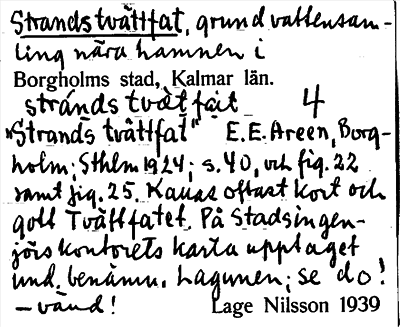 Strandstvättfat, grundvattensam-
ling nära hamnen i
Borgholms stad, Kalmar län.
strándstvät̀fat 4
"Strandstvättfat" E.E. Areen, Borg-
holm; Sthlm 1924; s. 40, och fig. 22
samt fig. 25. Kallas oftast kort och
gott Tvättfatet. På Stadsingen-
jörskontorets karta upptaget
und. benämn. Lagunen; se do!
– vänd! Lage Nilsson 1939